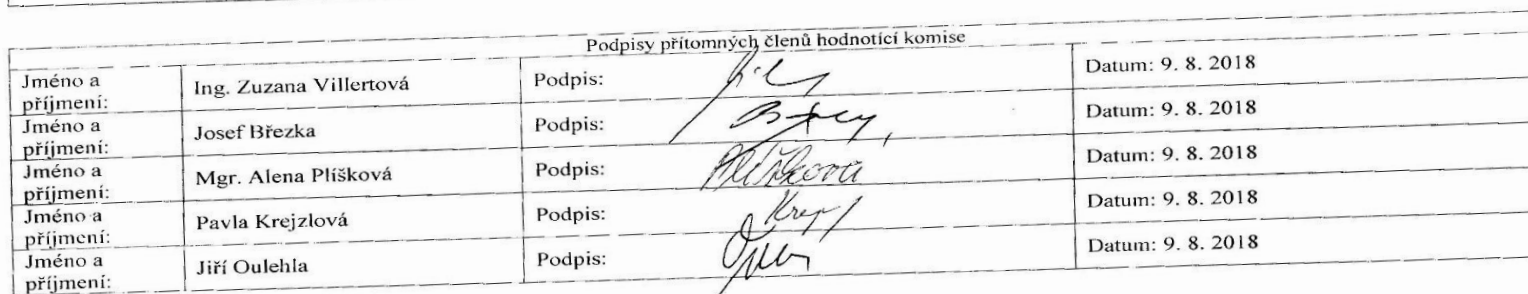 Podpisy přítomných členů hodnotící komise
Jméno a příjmení: Ing. Zuzana Villertová Podpis: Datum: 9. 8. 2018
Jméno a příjmení: Josef Březka Podpis: Datum: 9. 8. 2018
Jméno a příjmení: Mgr. Alena Plíšková Podpis: Plíšková Datum: 9. 8. 2018
Jméno a příjmení: Pavla Krejzlová Podpis: Datum: 9. 8. 2018
Jméno a příjmení: Jiří Oulehla Podpis: Datum: 9. 8. 2018